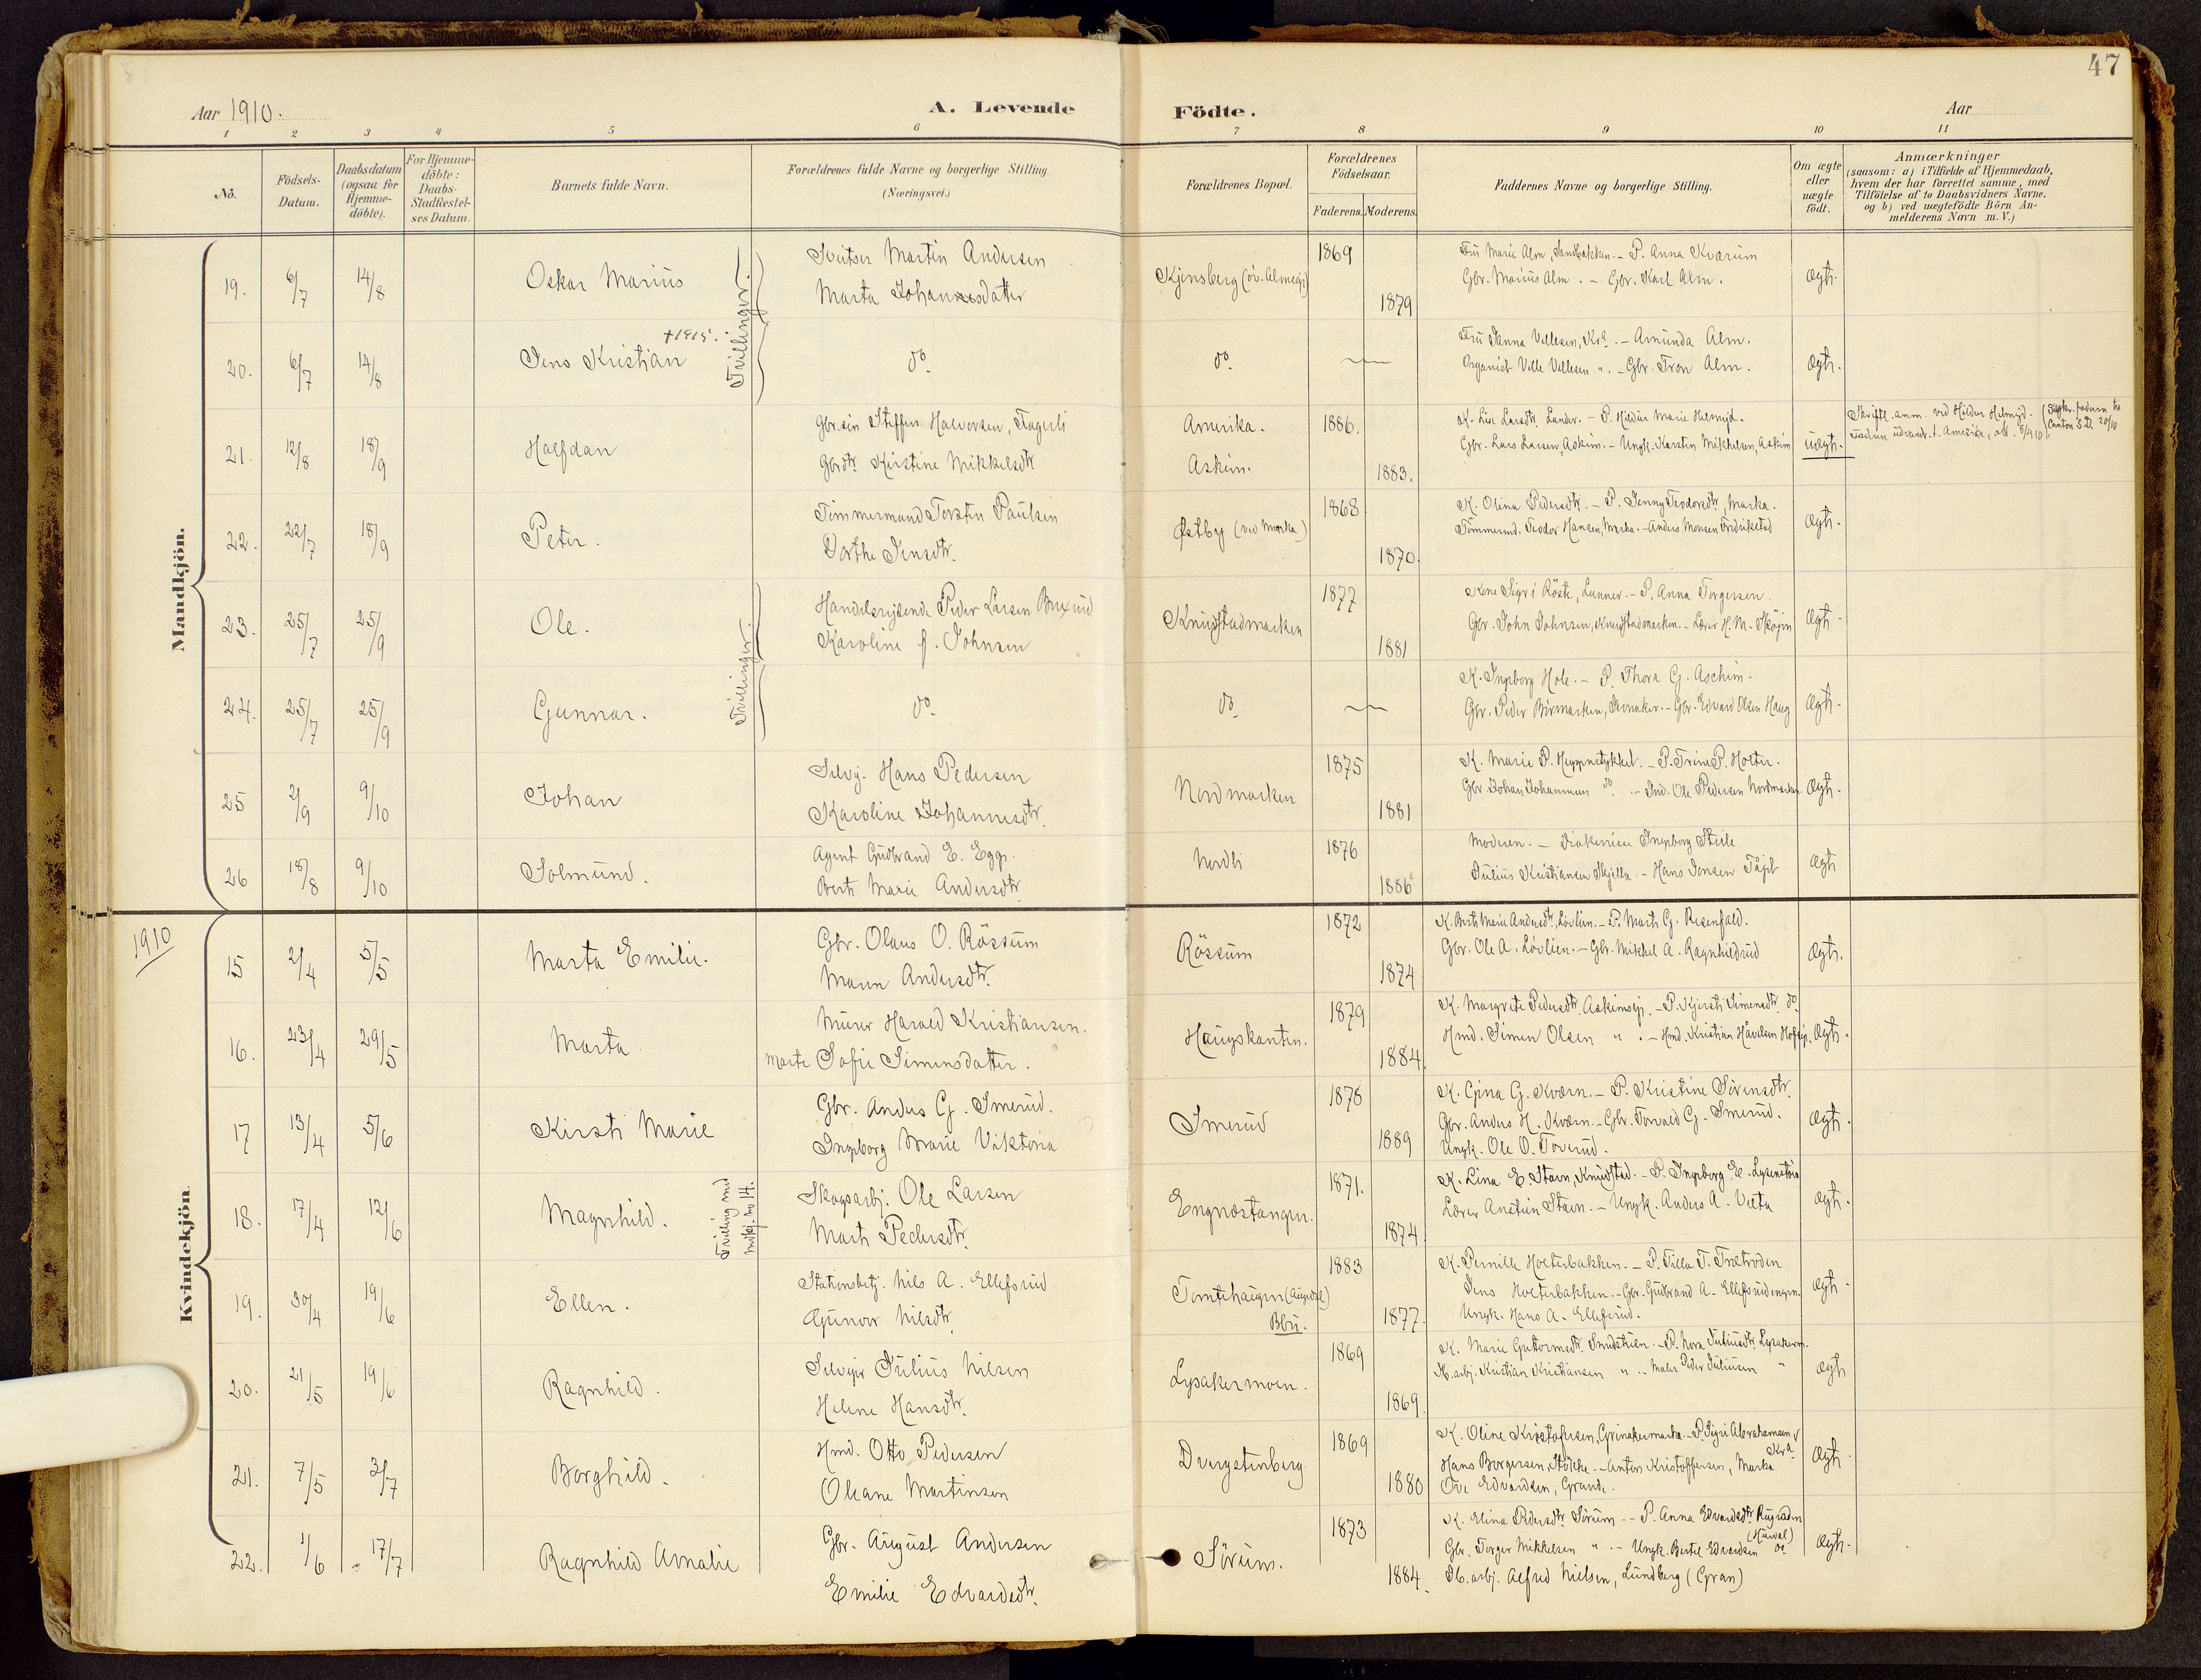 47
Aar 1910.
A. Levende Födte.
Aar
1 2 3 4 5 6 7 8 9 10 11
No.
Födsels-Datum.
Daabsdatum (ogsaa for Hjemme-döbte).
For Hjemme-döbte: Daabs-Stadfæstel-ses Datum.
Barnets fulde Navn.
Forældrenes fulde Navne og borgerlige Stilling.
(Næringsvei.)
Forældrenes Bopæl.
Forældrenes Födselsaar.
Faderens. Moderens.
Faddernes Navne og borgerlige Stilling.
Om ægte eller uægte födt.
Anmærkninger
(saasom: a) i Tilfælde af Hjemmedaab, hvem der har forrettet samme, med Tilföielse af to Daabsvidners Navne, og b) ved uægtefödte Börn An-melderens Navn m. V.)
Mandkjön.
19. 6/7 14/8 Oskar Marius Tvillinger.
Martin Andersen
Marta Johannesdatter
1869
1879
Fru Marie Alm, Sandbakken. - P. Anna Kværum
Gbr. Marius Alm. - Gbr. Karl Alm.
ægte.
20. 6/7 14/8 Jens Kristian +1915.
do.
do.
Fru Janna Vellesen, Kra. - Amunda Alm.
Organist Velle Vellesen ". - Gbr. Tron Alm.
ægte.
21. 12/8 18/9 Halfdan
Gbr.søn Steffen Halvorsen, Fagerli
Gbrdtr. Kirstine Mikkelsdtr
Amerika.
Askim.
1886.
1883.
Gbr. Lars Larsen, Askim. - Ungk. Karsten Mikkelsen, Askim
uægte.
22. 22/7 18/9 Peter.
Tømmermand Torsten Paulsen
Dorthe Jensdtr.
Østby (ved Marka)
1868
1870.
K. Olina Pedersdtr. - P. Jenny Teodorsdtr, Marka.
Tømmermd. Teodor Hansen, Marka. - Anders Monsen Fredrikstad
ægte.
23. 25/7 25/9 Ole. Tvillinger.
Handelsreisende Peder Larsen
Karoline f. Johnsen
Knudstadmarken
1877
1881
Kone Sigri Röste, Lunner. - P. Anna Torgersen.
Gbr. John Johnsen, Knudstadmarken. - Lærer H. M. Skögen
ægte.
24. 25/7 25/9 Gunnar.
do.
do.
K. Ingeborg Hole. - P. Thora G. Aschim.
Gbr. Peder - Gbr. Edvard Olsen Haug
ægte.
25 2/9 9/10 Johan
Selvej. Hans Pedersen
Karoline Johannesdtr.
Nordmarken
1875
1881
K. Marie P. Heggenstykket. - P. Trine P. Holter.
Gbr. Johan Johannesen do. - Ind. Ole Pedersen Nordmarken.
ægte.
26 18/8 9/10 Solmund.
Agent Gudbrand E. Egge.
Berte Marie Andersdtr.
Nordli
1876
1886
Moderen. - Diakonisse Ingeborg
Julius Kristiansen - Hans Jensen
ægte
1910
Kvindekjön.
15 2/4 5/5 Marta Emilie.
Gbr. Olaus O. Rössum
Maren Andersdtr.
Rössum
1872
1874
K. Berte Marie Andersdtr, Lövlien. - P. Marte G.
Gbr. Ole A. Lövlien. - Gbr. Mikkel A. Ragnhildrud
ægte.
16. 23/4 29/5 Marta
Murer Harald Kristiansen.
Marte Sofie Simensdatter.
Haugskanten.
1879
1884.
K. Margrete Pedersdtr. - P. Kjersti Simensdtr. do.
Hmd. Simen Olsen ". - Hmd. Kristian
ægte.
17 13/4 5/6 Kirsti Marie
Gbr. Anders G. Smerud.
Ingeborg Marie Viktoria
Smerud
1878
1889
K. Gina G. Kværn. - P. Kristine Sörensdtr.
Gbr. Anders H. Kværn. - Gbr. Torvald G. Smerud.
Ungk. Ole O. Toverud.
ægte.
18. 17/4 12/6 Magnhild. Tvilling med
Skogsarb. Ole Larsen
Marte Pedersdtr.
Engnæstangen.
1871.
1874.
K. Lina E. Staen, Knudstad. - P. Ingeborg E.
Lærer Austin Staen. - Ungk. Anders A. Velta
ægte.
19. 30/4 19/6 Ellen.
Stationsbetj. Nils A. Ellefsrud
Gunvor Nilsdtr.
Tomtehaugen
1883
1877.
K. Pernille Holterbakken. - P. Tilla T.
Jens Holterbakken. - Gbr. Gudbrand A. Ellefsrudengen.
Ungk. Hans A. Ellefsrud.
ægte.
20. 21/5 19/6 Ragnhild.
Selvejer Julius Nilsen
Helene Hansdtr.
Lysakermoen.
1869
1869.
K. Marie Guttormsdtr. - P. Nora Juliusdtr. Lysakerm.
arb. Kristian Kristiansen " - Maler Peder Juliusen "
ægte
21. 7/5 3/7 Borghild.
Hmd. Otto Pedersen
Oleane Martinsen
Dvergstenberg.
1869
1880
K. Oline Kristofersen, Grinakermarka. - P. Sigri Abrahamsen Kra.
Hans Borgersen, - Anton Kristoffersen, Marka
Ove Edvardsen, Grande.
ægte.
22. 1/6 17/7 Ragnhild Amalie
Gbr. August Andersen
Emilie Edvardsdtr.
Sörum.
1873
1884.
K. Elina Pedersdtr. Sörum. - P. Anna Edvardsdtr.
(Hurdal)
Gbr. Torger Mikkelsen " - Ungk. Bertel Edvardsen do.
arb. Alfred Nielsen, Lundberg (Gran)
ægte.